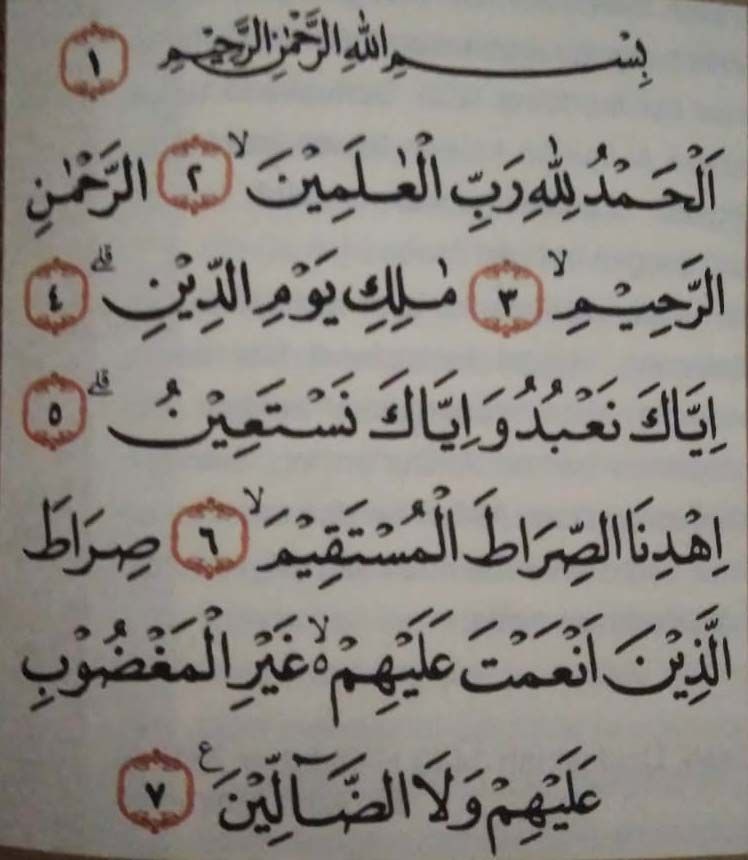 بِسْمِ اللهِ الرَّحْمٰنِ الرَّحِيْمِ ١
اَلْحَمْدُ لِلّٰهِ رَبِّ الْعٰلَمِيْنَ ۙ ٢ الرَّحْمٰنِ
الرَّحِيْمِ ۙ ٣ مٰلِكِ يَوْمِ الدِّيْنِ ۗ ٤
اِيَّاكَ نَعْبُدُ وَاِيَّاكَ نَسْتَعِيْنُ ۗ ٥
اِهْدِنَا الصِّرَاطَ الْمُسْتَقِيْمَ ۙ ٦ صِرَاطَ
الَّذِيْنَ اَنْعَمْتَ عَلَيْهِمْ ەۙ غَيْرِ الْمَغْضُوْبِ
عَلَيْهِمْ وَلَا الضَّاۤلِّيْنَ ع ٧